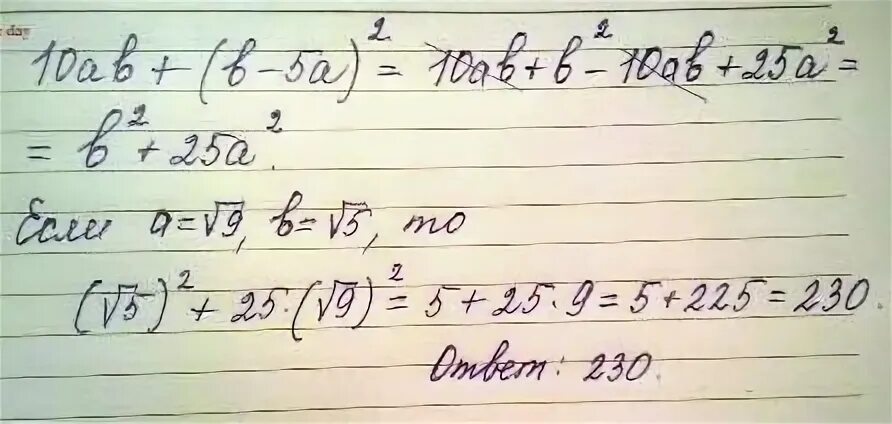 day
10ab + (b - 5a)² = 10ab + b² - 10ab + 25a² =
= b² + 25a².
Если a = √9, b = √5, то
(√5)² + 25·(√9)² = 5 + 25·9 = 5 + 225 = 230.
Ответ: 230.